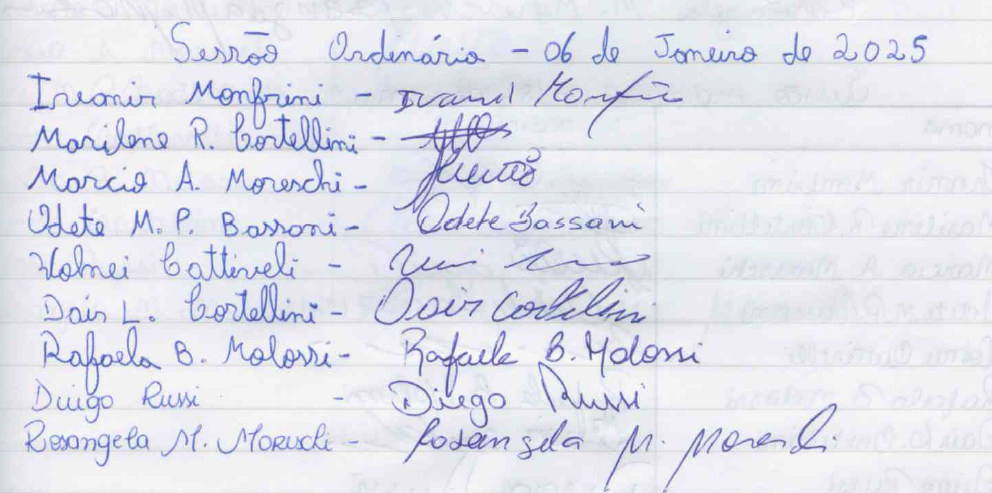 Sessão Ordinária - 06 de Janeiro de 2025
Ivanir Monfrini - Ivanir Monfrini
Marilene R. Cortellini -
Marcio A. Moreschi -
Odete M. P. Bassani - Odete Bassani
Volnei Cattiveli -
Dair L. Cortellini - Dair Cortellini
Rafaela B. Molossi - Rafaela B. Molossi
Diego Russi - Diego Russi
Rosangela M. Moreschi - Rosangela M. Moreschi